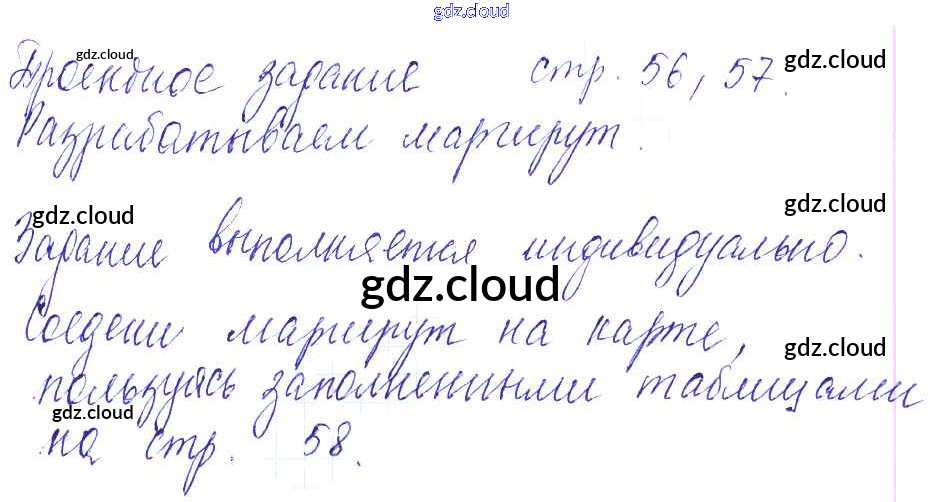 gdz.cloud
gdz.cloud
Проектное задание стр. 56, 57.
gdz.cloud
Разрабатываем маршрут.
gdz.cloud
gdz.cloud
Задание выполняется индивидуально.
gdz.cloud
Соедени маршрут на карте,
gdz.cloud
пользуясь заполненными таблицами
gdz.cloud
на стр. 58.